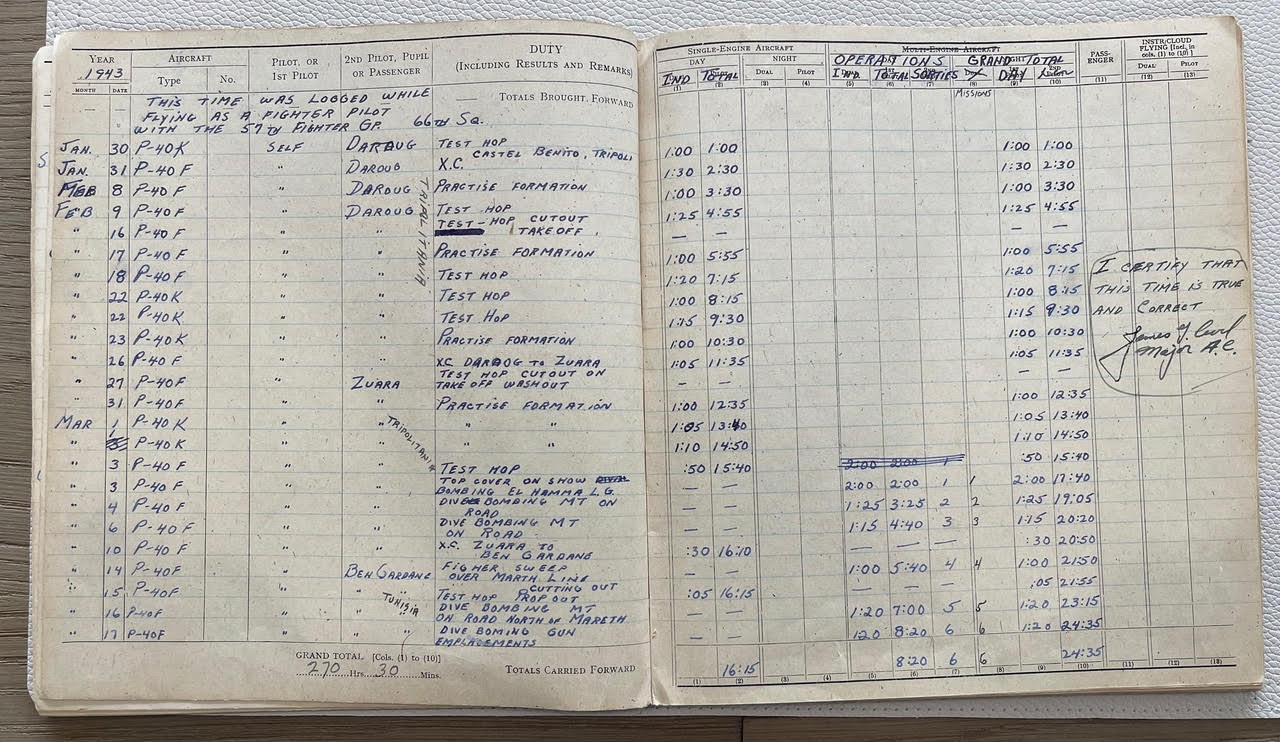 YEAR AIRCRAFT PILOT, OR 1ST PILOT 2ND PILOT, PUPIL OR PASSENGER DUTY (INCLUDING RESULTS AND REMARKS)
1943 Type No.
MONTH DATE
— — — TOTALS BROUGHT FORWARD
THIS TIME WAS LOGGED WHILE
FLYING AS A FIGHTER PILOT
WITH THE 57TH FIGHTER GP. 66TH SQ.
JAN. 30 P-40K SELF DAROUG TEST HOP
CASTEL BENITO, TRIPOLI
JAN. 31 P-40F " DAROUG X.C.
FEB 8 P-40F " DAROUG PRACTISE FORMATION
FEB 9 P-40F " DAROUG TEST HOP
" 16 P-40F " " TEST-HOP CUTOUT
TAKEOFF.
" 17 P-40F " " PRACTISE FORMATION
" 18 P-40F " " TEST HOP
" 22 P-40K " " TEST HOP
" 22 P-40K " " TEST HOP
" 23 P-40K " " PRACTISE FORMATION
" 26 P-40F " " XC. DAROOG TO ZUARA
" 27 P-40F " ZUARA TEST HOP CUTOUT ON
TAKE OFF WASHOUT
" 31 P-40F " " PRACTISE FORMATION
MAR 1 P-40K " " " "
" P-40K " " " "
" 3 P-40F " " TEST HOP
" 3 P-40F " " TOP COVER ON SHOW
BOMBING EL HAMMA L.G.
" 4 P-40F " " DIVE BOMBING MT ON
ROAD
" 6 P-40F " " DIVE BOMBING MT
ON ROAD
" 10 P-40F " " X.C. ZUARA TO
BEN GARDANE
" 14 P-40F " BEN GARDANE FIGHER SWEEP
OVER MARTH LINE
" 15 P-40F " " TEST HOP PROP CUTTING OUT
OUT
" 16 P-40F " " DIVE BOMBING MT
ON ROAD NORTH OF MARETH
" 17 P-40F " " DIVE BOMING GUN
EMPLACEMENTS
TRIPOLITANIA
TRIPOLITANIA
TUNISIA
GRAND TOTAL [Cols. (1) to (10)]
270 Hrs. 30 Mins.
TOTALS CARRIED FORWARD
SINGLE-ENGINE AIRCRAFT MULTI-ENGINE AIRCRAFT PASSENGER INSTR/CLOUD FLYING [Incl. in cols. (1) to (10)]
DAY NIGHT OPERATIONS GRAND TOTAL
IND TOTAL DUAL PILOT IND. TOTAL SORTIES DAY DUAL PILOT
(1) (2) (3) (4) (5) (6) (7) (8) (9) (10) (11) (12) (13)
MISSIONS
1:00 1:00 1:00 1:00
1:30 2:30 1:30 2:30
1:00 3:30 1:00 3:30
1:25 4:55 1:25 4:55
— — — —
1:00 5:55 1:00 5:55
1:20 7:15 1:20 7:15
1:00 8:15 1:00 8:15
1:15 9:30 1:15 9:30
1:00 10:30 1:00 10:30
1:05 11:35 1:05 11:35
— — — —
1:00 12:35 1:00 12:35
1:05 13:40 1:05 13:40
1:10 14:50 1:10 14:50
:50 15:40 2:00 2:00 1 :50 15:40
— — 2:00 2:00 1 1 2:00 17:40
— — 1:25 3:25 2 2 1:25 19:05
— — 1:15 4:40 3 3 1:15 20:20
:30 16:10 — — — :30 20:50
— — 1:00 5:40 4 4 1:00 21:50
:05 16:15 — — — :05 21:55
— — 1:20 7:00 5 5 1:20 23:15
— — 1:20 8:20 6 6 1:20 24:35
16:15 8:20 6 6 24:35
(1) (2) (3) (4) (5) (6) (7) (8) (9) (10) (11) (12) (13)
I CERTIFY THAT
THIS TIME IS TRUE
AND CORRECT
Major A.C.